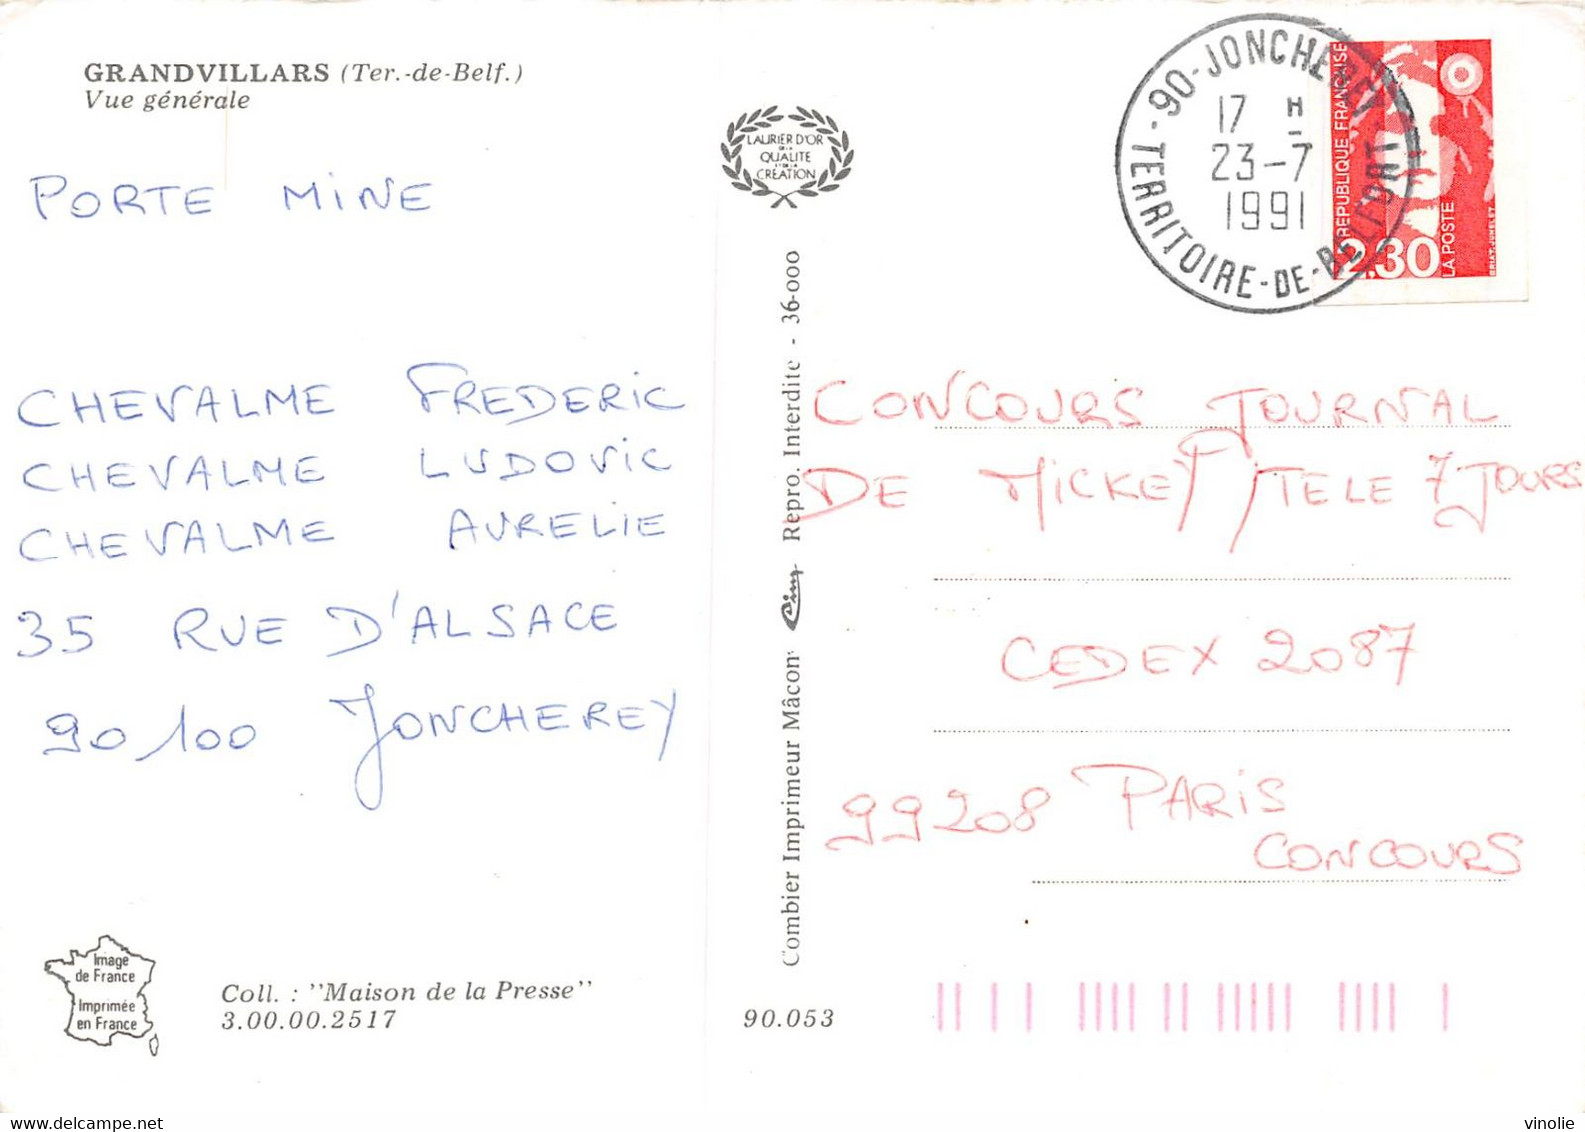 GRANDVILLARS (Ter.-de-Belf.)
Vue générale
PORTE MINE
CHEVALME FREDERIC
CHEVALME LUDOVIC
CHEVALME AURELIE
35 RUE D'ALSACE
90100 JONCHEREY
Image
de France
Imprimée
en France
Coll. : "Maison de la Presse"
3.00.00.2517
LAURIER D'OR
DE LA
QUALITE
ET DE LA
CREATION
Combier Imprimeur Mâcon Cim Repro. Interdite - 36-000
90.053
90-JONCHEREY
17 H
23-7
1991
TERRITOIRE-DE-BELFORT
REPUBLIQUE FRANÇAISE
2,30
LA POSTE
BRIAT-JUMELET
CONCOURS JOURNAL
DE MICKEY/TELE 7 JOURS
CEDEX 2087
99208 PARIS
CONCOURS
delcampe.net
vinolie